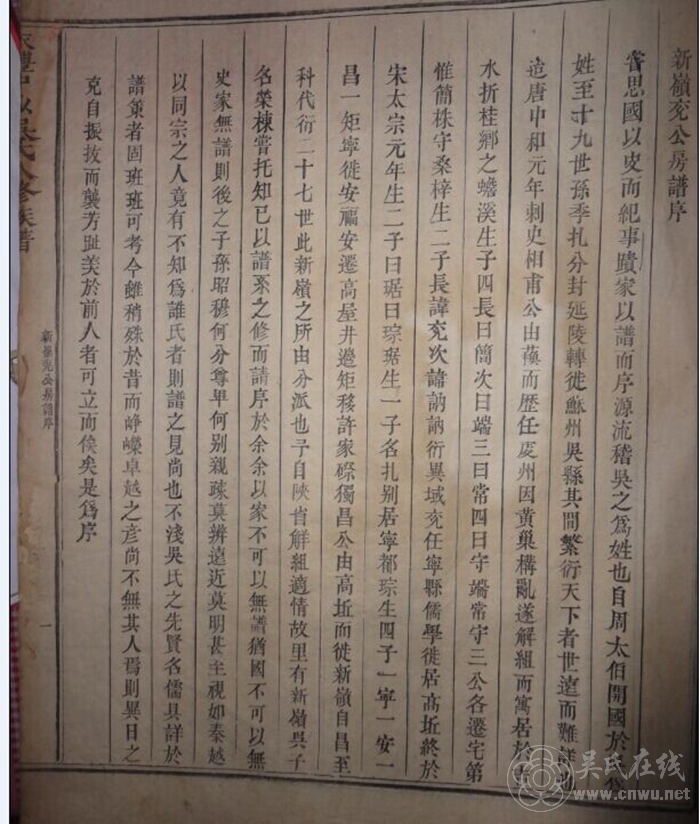 新嶺兖公房譜序
嘗思國以史而紀事蹟家以譜而序源流稽吳之爲姓也自周太伯開國於
姓至十九世孫季扎分封延陵轉徙蘇州吳縣其間繁衍天下者世遠而難
迨唐中和元年刺史相甫公由蘇而歷任處州因黄巢構亂遂解組而寓居於
水折桂鄉之蟾溪生子四長曰簡次曰端三曰常四曰守端常守三公各遷宅第
惟簡株守桑梓生二子長諱兖次諱訥訥衍異域兖任寧縣儒學徙居高坵終於
宋太宗元年生二子曰琚曰琮琚生一子名扎别居寧都琮生四子一寧一安一
昌一矩寧徙安福安遷高屋井邉矩移許家磜獨昌公由高坵而徙新嶺自昌至
科代衍二十七世此新嶺之所由分派也予自陝省解組適情故里有新嶺吳子
名榮棟嘗托知已以譜系之修而請序於余余以家不可以無譜猶國不可以無
史家無譜則後之子孫昭穆何分尊卑何别親疎莫辨遠近莫明甚至視如秦越
以同宗之人竟有不知爲誰氏者則譜之見尚也不淺吳氏之先賢名儒具詳於
譜策者固班班可考今雖稍殊於昔而崢嶸卓越之彦尚不無其人焉則異日之
克自振拔而襲芳趾美於前人者可立而俟矣是爲序
新嶺兖公房譜序
一
吴氏在线
www.cnwu.net